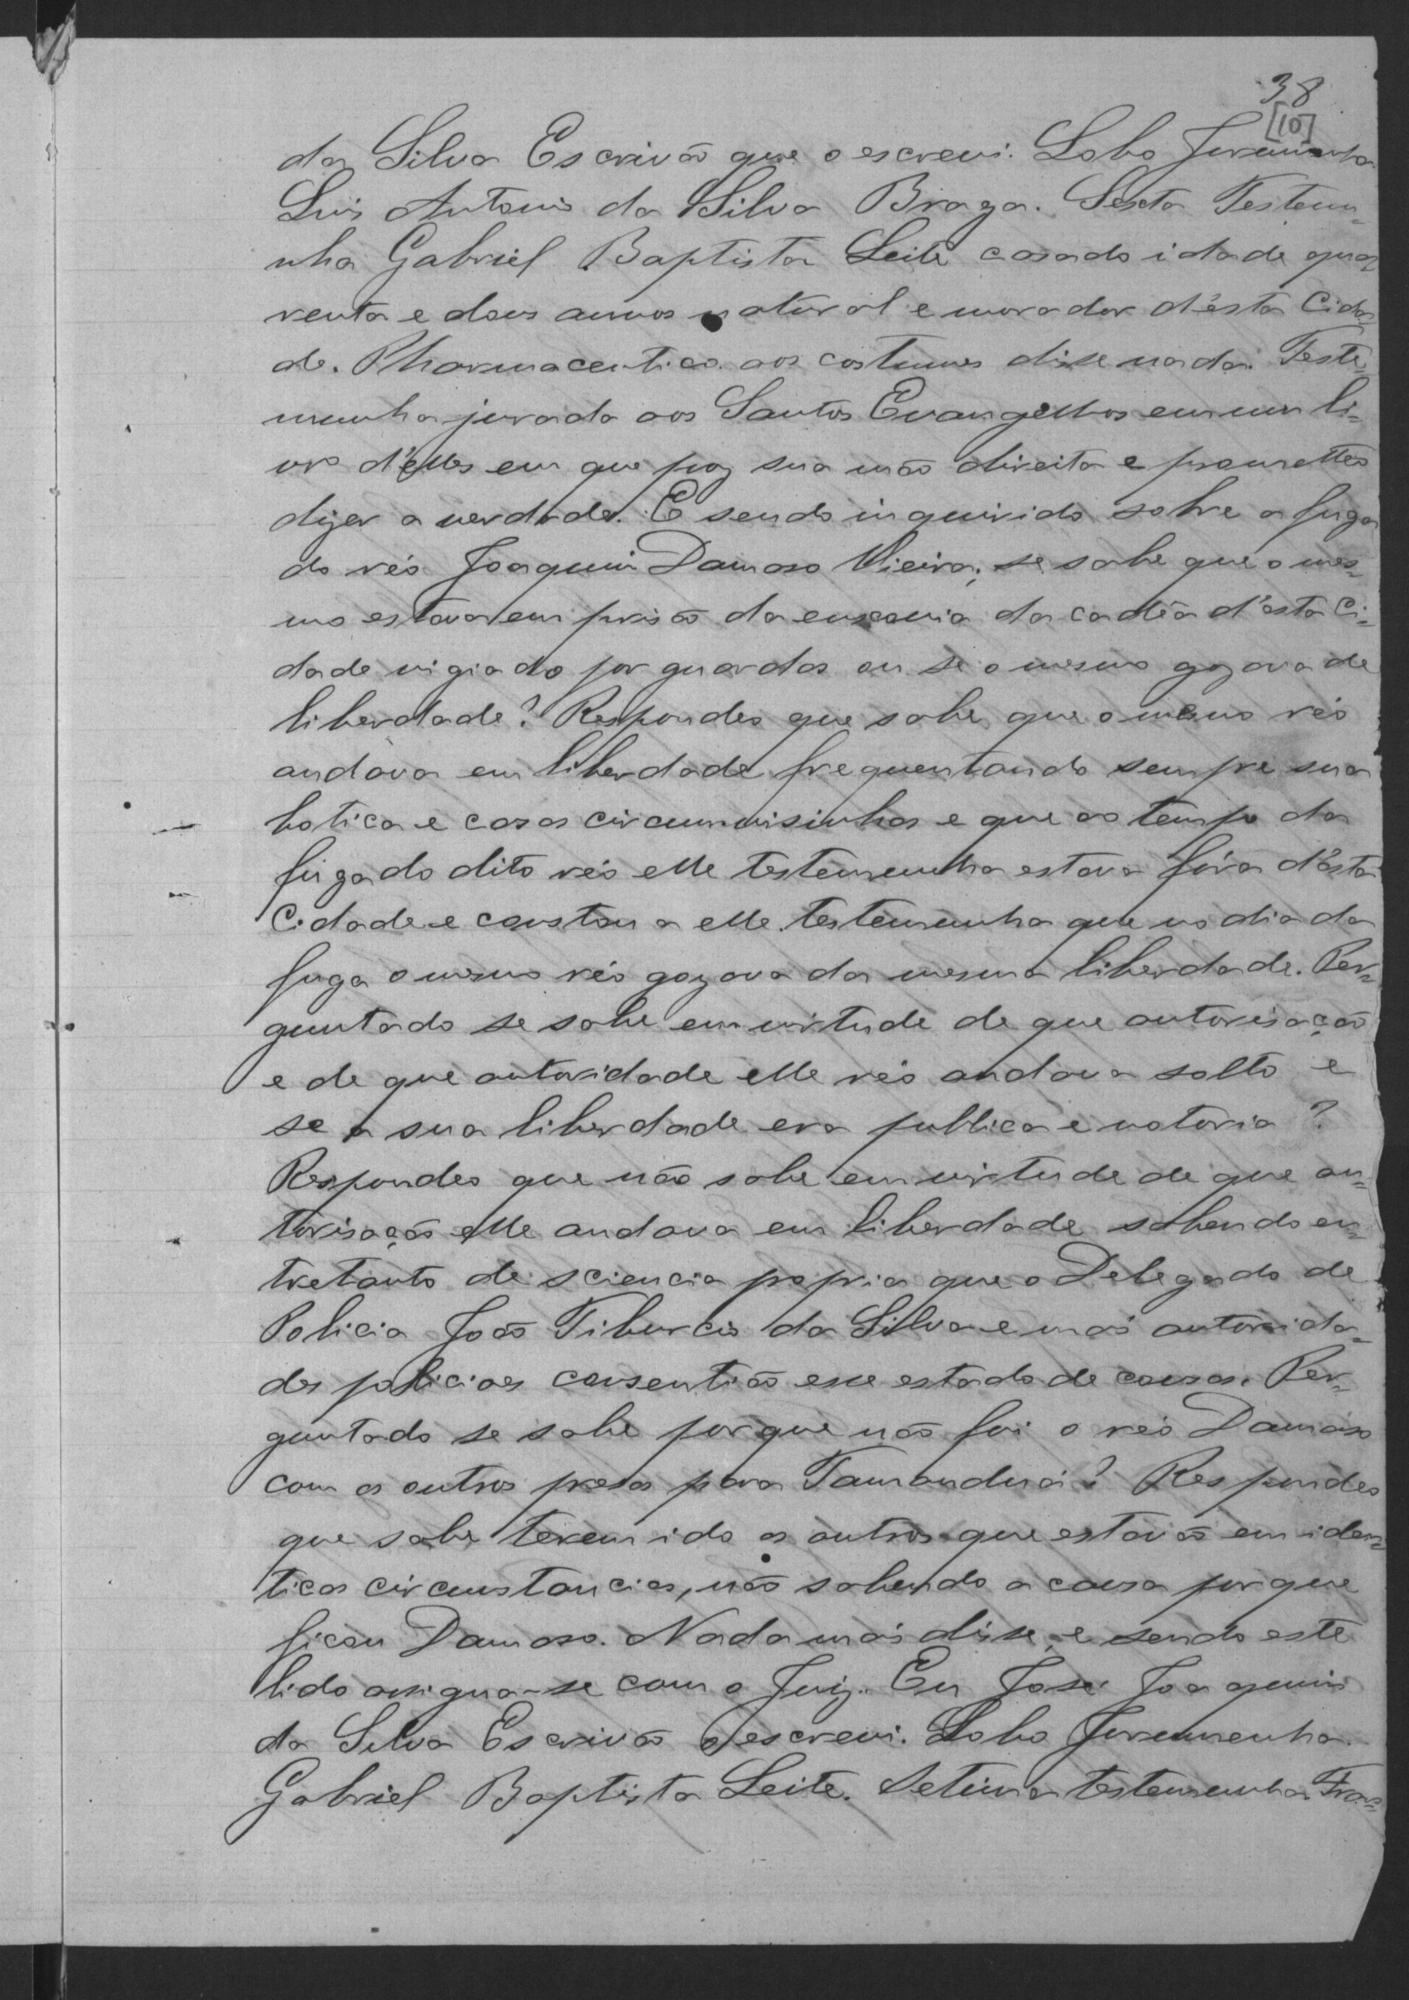 38
[10]
da Silva Escrivão que o escrevi. Lobo Jurumenha
Luis Antonio da Silva Braga. Sexta Testemu-
nha Gabriel Baptista Leite casado idade qua-
renta e dois annos natural e morador d'ésta Cida-
de. Pharmaceutico. aos costumes disse nada. Teste-
munha jurada aos Santos Evangelhos em um li-
vro d'elles em que poz sua mão direita e prometteo
dizer a verdade. E sendo inquirido sobre a fuga
do réo Joaquim Damaso Vieira; se sabe que o mes-
mo estava em prisão da enxovia da cadêa d'ésta Ci-
dade vigiado por guardas ou se o mesmo gozava de
liberdade? Respondeo que sabe que o mesmo réo
andava em liberdade frequentando sempre sua
botica e casas circumvisinhas e que ao tempo da
fuga do dito réo elle testemunha estava fóra d'ésta
Cidade e constou a elle testemunha que no dia da
fuga o mesmo réo gozava da mesma liberdade. Per-
guntado se sabe em virtude de que autorisação
e de que autoridade elle réo andava solto e
se a sua liberdade era publica e notoria?
Respondeo que não sabe em virtude de que au-
torisação elle andava em liberdade sabendo en-
tretanto de sciencia propria que o Delegado de
Policia João Tiburcio da Silva e mais autorida-
des policiaes consentião esse estado de cousas. Per-
guntado se sabe porque não foi o réo Damaso
com os outros presos para Tamanduá? Respondeo
que sabe terem ido os outros que estavão em iden-
ticas circunstancias, não sabendo a causa porque
ficou Damaso. Nada mais disse, e sendo este
lido assigna-se com o Juiz. Eu José Joaquim
da Silva Escrivão o escrevi. Lobo Jurumenha.
Gabriel Baptista Leite. Setima testemunha Fran-